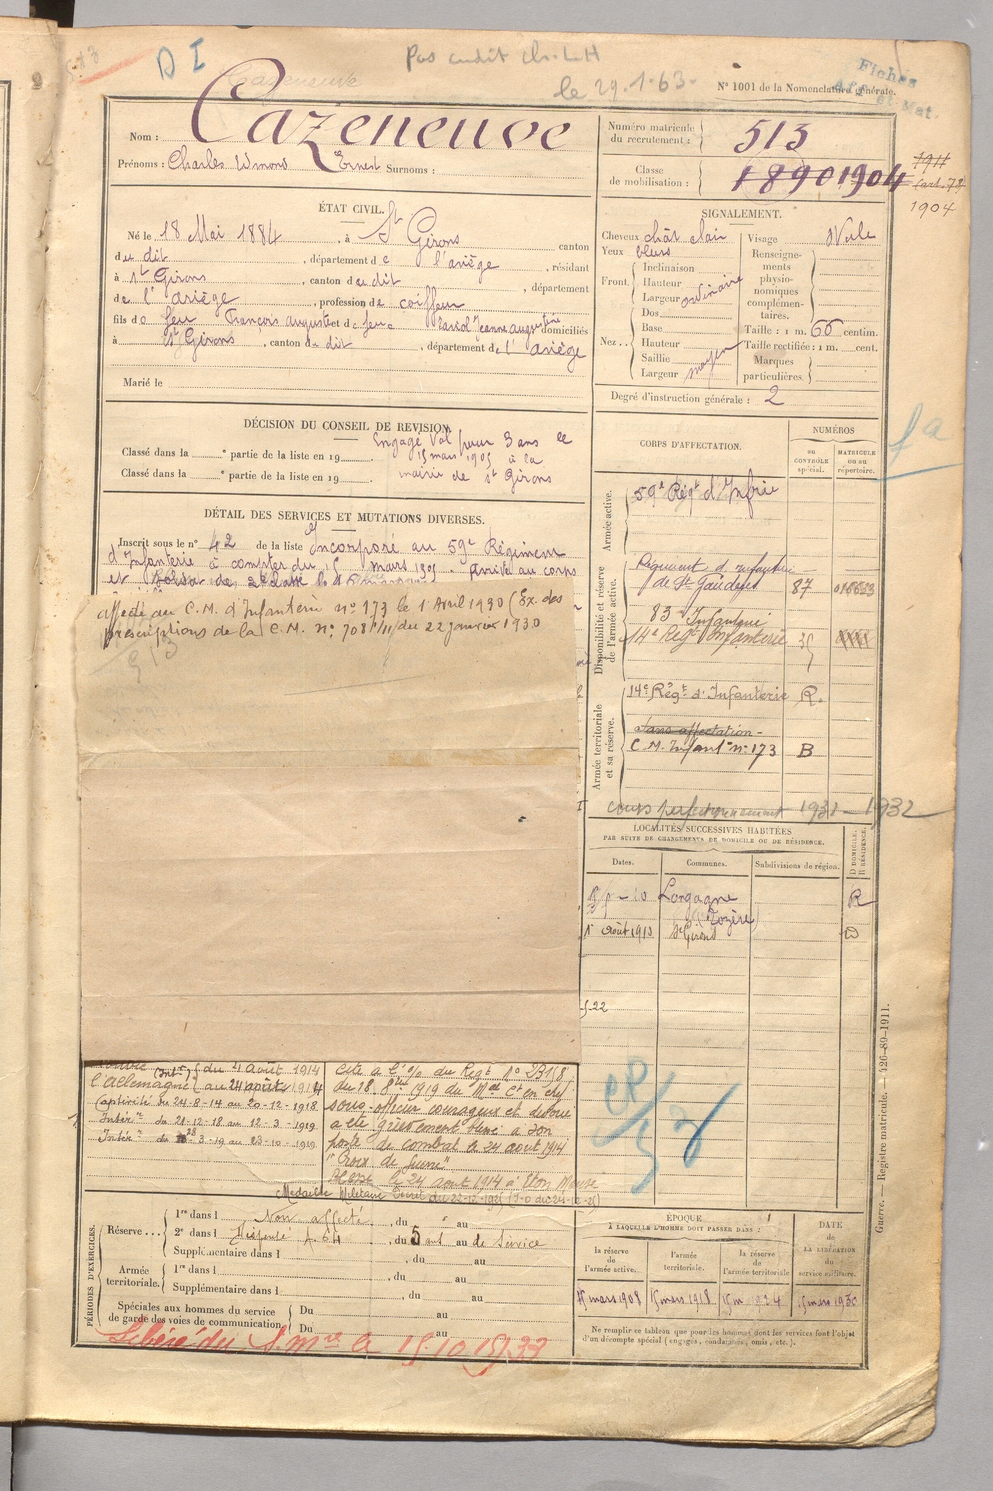 D I
Pas audit ch. L. H
le 29.1.63.
Fiches
N° 1001 de la Nomenclature générale.
Nom : Cazeneuve
Prénoms : Charles Ernest Surnoms :
Numéro matricule
du recrutement :
513
Classe
de mobilisation :
1890 1904
1911
1904
ÉTAT CIVIL.
Né le 18 Mai 1884, à St Girons canton
du dit, département de l'ariège, résidant
à St Girons, canton du dit, département
de l'ariège, profession de coiffeur
fils de feu François auguste et de feue Jeanne augustine domiciliés
à St Girons, canton du dit, département de l'ariège
Marié le
SIGNALEMENT.
Cheveux chât clair
Yeux bleus
Front. Inclinaison
Hauteur
Largeur ordinaire
Nez.. Dos
Base
Hauteur
Saillie
Largeur moyen
Visage ovale
Renseigne-
ments
physio-
nomiques
complémen-
taires.
Taille : 1 m. 66 centim.
Taille rectifiée : 1 m. cent.
Marques
particulières.
Degré d'instruction générale : 2
DÉCISION DU CONSEIL DE REVISION
Classé dans la e partie de la liste en 19
Classé dans la e partie de la liste en 19
Engagé Vol pour 3 ans le
15 mars 1905 à la
mairie de St Girons
DÉTAIL DES SERVICES ET MUTATIONS DIVERSES.
Inscrit sous le n° 42 de la liste Incorporé au 59e Régiment
d'Infanterie à compter du 15 mars 1905. Arrivé au corps
affecté au C.M. d'Infanterie n° 173 le 1 Avril 1930 (Ex. des
prescriptions de la C.M. n° 708 1/11 du 22 janvier 1930
513
CORPS D'AFFECTATION.
NUMÉROS
DU
CONTRÔLE
spécial.
MATRICULE
OU DU
répertoire.
Armée active.
59e Régt d'Infrie
Disponibilité et réserve
de l'armée active.
Régiment d'infanterie
de St Gaudens 87
83 Infanterie
14e Régt Infanterie
Armée territoriale
et sa réserve.
14e Régt d'Infanterie R.
Sans affectation -
C.M. Infante n° 173 B
cours perfectionnement 1931 - 1932
LOCALITÉS SUCCESSIVES HABITÉES
PAR SUITE DE CHANGEMENTS DE DOMICILE OU DE RÉSIDENCE.
Dates. Communes. Subdivisions de région. D DOMICILE. R RÉSIDENCE.
Langogne R
(Lozère)
1 Août 1913 St Girons D
-5-22
l'allemagne (intr) du 4 Août 1914
au 24 août 1914
Captivité du 24-8-14 au 20-12-1918
Intérr du 21-12-18 au 12-3-1919
Intérr du 3-19 au 23-10-1919
Cité à l'o/ du Regt N° 231/8
du 18. 8bre 1919 du Mal Ct en chef
sous-officier courageux et dévoué
a été grièvement blessé à son
poste de combat le 24 août 1914
"Croix de Guerre"
Blessé le 24 aout 1914 à Eton Meuse
Médaille Militaire Décret du 22-12-1925
PÉRIODES D'EXERCICES.
Réserve... 1re dans l Non affecté, du au
2e dans l Dispensé, du 5 ans au de service
Supplémentaire dans l, du au
Armée
territoriale. 1re dans l, du au
Supplémentaire dans l, du au
Spéciales aux hommes du service
de garde des voies de communication
Du au
Du au
Libéré du S. mre le 15 10 1933
ÉPOQUE
À LAQUELLE L'HOMME DOIT PASSER DANS :
la réserve
de
l'armée active.
l'armée
territoriale.
la réserve
de
l'armée territoriale
DATE
de
LA LIBÉRATION
du
service militaire.
15 mars 1908 15 mars 1918 15 m 1924 15 mars 1930
Ne remplir ce tableau que pour les hommes dont les services font l'objet
d'un décompte spécial (engagés, condamnés, omis, etc.).
Guerre. — Registre matricule. — 426-89-1911.